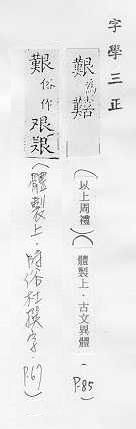 字學三正
艱
(以上周禮)(體製上·古文異體 — P.85)
艱俗作
(體製上·時俗杜撰字· P.67)